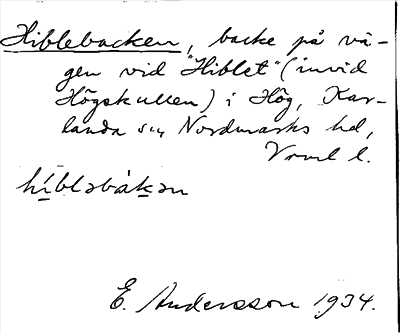 Hiblebacken, backe på vä-
gen vid "Hiblet" (invid
Högskullen) i Hög, Kar-
landa sn, Nordmarks hd,
Vrml l.
híbləbàkən
E. Andersson 1934.